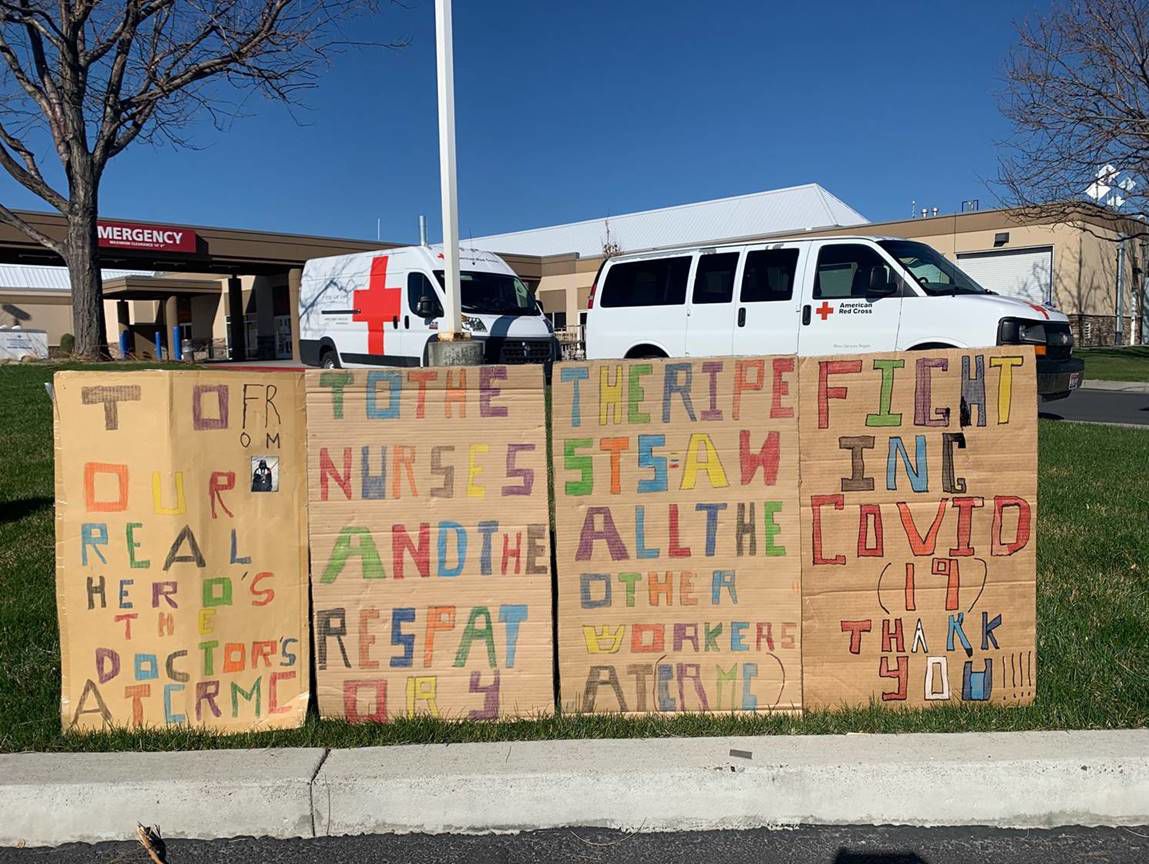 MERGENCY
American
Red Cross
TO FR
OM
OUR
REAL
HERO'S
THE
DOCTOR'S
AT CRMC
TO THE
NURSES
AND THE
RESPAT
ORY
THERIPE
STS=AN
ALL THE
OTHER
WORKERS
AT (CRMC)
FIGHT
ING
COVID
(19)
THAKK
YOU !!!!